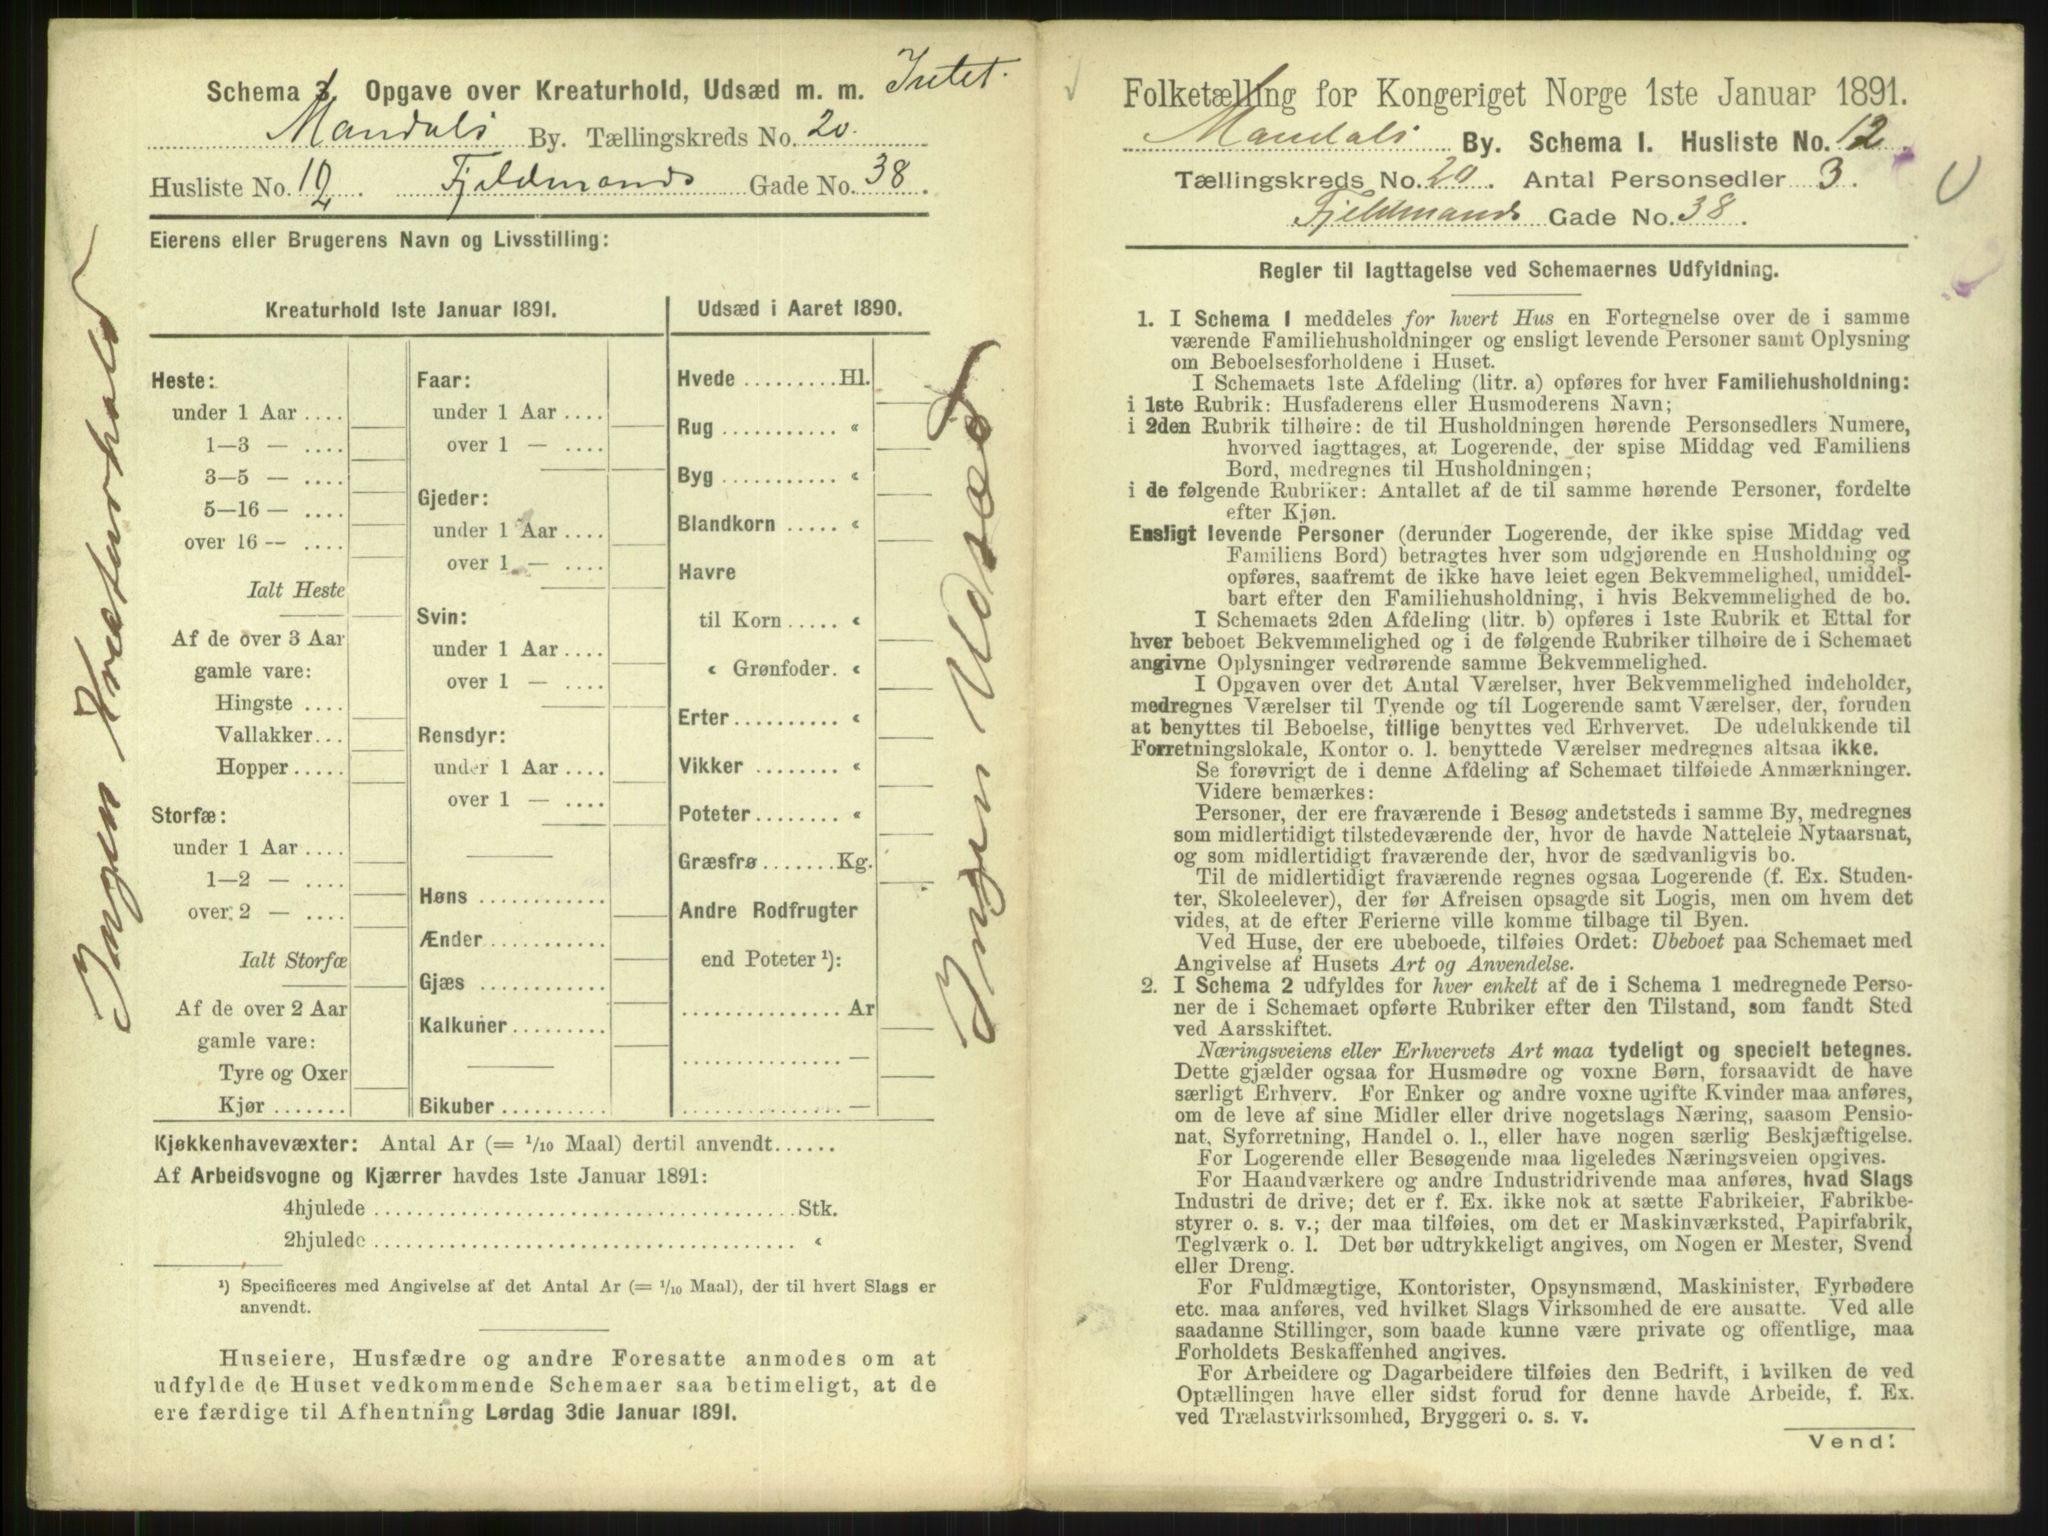 Schema 3. Opgave over Kreaturhold, Udsæd m. m. Intet.
Mandals By. Tællingskreds No. 20.
Husliste No. 12. Fjeldmands Gade No. 38.
Eierens eller Brugerens Navn og Livsstilling:
Kreaturhold 1ste Januar 1891.
Heste:
under 1 Aar ....
1—3 — ....
3—5 — ....
5—16 — ....
over 16 — ....
Ialt Heste
Af de over 3 Aar
gamle vare:
Hingste ....
Vallakker...
Hopper.....
Storfæ:
under 1 Aar ....
1—2 — ....
over 2 — ....
Ialt Storfæ
Af de over 2 Aar
gamle vare:
Tyre og Oxer
Kjør .......
Faar:
under 1 Aar ....
over 1 — ....
Gjeder:
under 1 Aar ....
over 1 — ....
Svin:
under 1 Aar ....
over 1 — ....
Rensdyr:
under 1 Aar ....
over 1 — ....
Høns ............
Ænder...........
Gjæs ............
Kalkuner.........
Bikuber ..........
Udsæd i Aaret 1890.
Hvede .........Hl.
Rug ........... «
Byg ........... «
Blandkorn ..... «
Havre
til Korn ..... «
« Grønfoder. «
Erter.......... «
Vikker ........ «
Poteter........ «
Græsfrø .......Kg.
Andre Rodfrugter
end Poteter ¹):
............... Ar
............... —
............... —
Ingen Kreaturhold
Ingen Udsæd
Kjøkkenhavevæxter: Antal Ar (= 1/10 Maal) dertil anvendt......
Af Arbeidsvogne og Kjærrer havdes 1ste Januar 1891:
4hjulede ........................................Stk.
2hjulede ........................................ «
¹) Specificeres med Angivelse af det Antal Ar (= 1/10 Maal), der til hvert Slags er
anvendt.
Huseiere, Husfædre og andre Foresatte anmodes om at
udfylde de Huset vedkommende Schemaer saa betimeligt, at de
ere færdige til Afhentning Lørdag 3die Januar 1891.
Folketælling for Kongeriget Norge 1ste Januar 1891.
Mandals By. Schema I. Husliste No. 12.
Tællingskreds No. 20. Antal Personsedler 3.
Fjeldmands Gade No. 38.
Regler til Iagttagelse ved Schemaernes Udfyldning.
1. I Schema 1 meddeles for hvert Hus en Fortegnelse over de i samme
værende Familiehusholdninger og ensligt levende Personer samt Oplysning
om Beboelsesforholdene i Huset.
I Schemaets 1ste Afdeling (litr. a) opføres for hver Familiehusholdning:
i 1ste Rubrik: Husfaderens eller Husmoderens Navn;
i 2den Rubrik tilhøire: de til Husholdningen hørende Personsedlers Numere,
hvorved iagttages, at Logerende, der spise Middag ved Familiens
Bord, medregnes til Husholdningen;
i de følgende Rubriker: Antallet af de til samme hørende Personer, fordelte
efter Kjøn.
Ensligt levende Personer (derunder Logerende, der ikke spise Middag ved
Familiens Bord) betragtes hver som udgjørende en Husholdning og
opføres, saafremt de ikke have leiet egen Bekvemmelighed, umiddel-
bart efter den Familiehusholdning, i hvis Bekvemmelighed de bo.
I Schemaets 2den Afdeling (litr. b) opføres i 1ste Rubrik et Ettal for
hver beboet Bekvemmelighed og i de følgende Rubriker tilhøire de i Schemaet
angivne Oplysninger vedrørende samme Bekvemmelighed.
I Opgaven over det Antal Værelser, hver Bekvemmelighed indeholder,
medregnes Værelser til Tyende og til Logerende samt Værelser, der, foruden
at benyttes til Beboelse, tillige benyttes ved Erhvervet. De udelukkende til
Forretningslokale, Kontor o. l. benyttede Værelser medregnes altsaa ikke.
Se forøvrigt de i denne Afdeling af Schemaet tilføiede Anmærkninger.
Videre bemærkes:
Personer, der ere fraværende i Besøg andetsteds i samme By, medregnes
som midlertidigt tilstedeværende der, hvor de havde Natteleie Nytaarsnat,
og som midlertidigt fraværende der, hvor de sædvanligvis bo.
Til de midlertidigt fraværende regnes ogsaa Logerende (f. Ex. Studen-
ter, Skoleelever), der før Afreisen opsagde sit Logis, men om hvem det
vides, at de efter Ferierne ville komme tilbage til Byen.
Ved Huse, der ere ubeboede, tilføies Ordet: Ubeboet paa Schemaet med
Angivelse af Husets Art og Anvendelse.
2. I Schema 2 udfyldes for hver enkelt af de i Schema 1 medregnede Perso-
ner de i Schemaet opførte Rubriker efter den Tilstand, som fandt Sted
ved Aarsskiftet.
Næringsveiens eller Erhvervets Art maa tydeligt og specielt betegnes.
Dette gjælder ogsaa for Husmødre og voxne Børn, forsaavidt de have
særligt Erhverv. For Enker og andre voxne ugifte Kvinder maa anføres,
om de leve af sine Midler eller drive nogetslags Næring, saasom Pensio-
nat, Syforretning, Handel o. l., eller have nogen særlig Beskjæftigelse.
For Logerende eller Besøgende maa ligeledes Næringsveien opgives.
For Haandværkere og andre Industridrivende maa anføres, hvad Slags
Industri de drive; det er f. Ex. ikke nok at sætte Fabrikeier, Fabrikbe-
styrer o. s. v.; der maa tilføies, om det er Maskinværksted, Papirfabrik,
Teglværk o. l. Det bør udtrykkeligt angives, om Nogen er Mester, Svend
eller Dreng.
For Fuldmægtige, Kontorister, Opsynsmænd, Maskinister, Fyrbødere
etc. maa anføres, ved hvilket Slags Virksomhed de ere ansatte. Ved alle
saadanne Stillinger, som baade kunne være private og offentlige, maa
Forholdets Beskaffenhed angives.
For Arbeidere og Dagarbeidere tilføies den Bedrift, i hvilken de ved
Optællingen have eller sidst forud for denne havde Arbeide, f. Ex.
ved Trælastvirksomhed, Bryggeri o. s. v.
Vend!